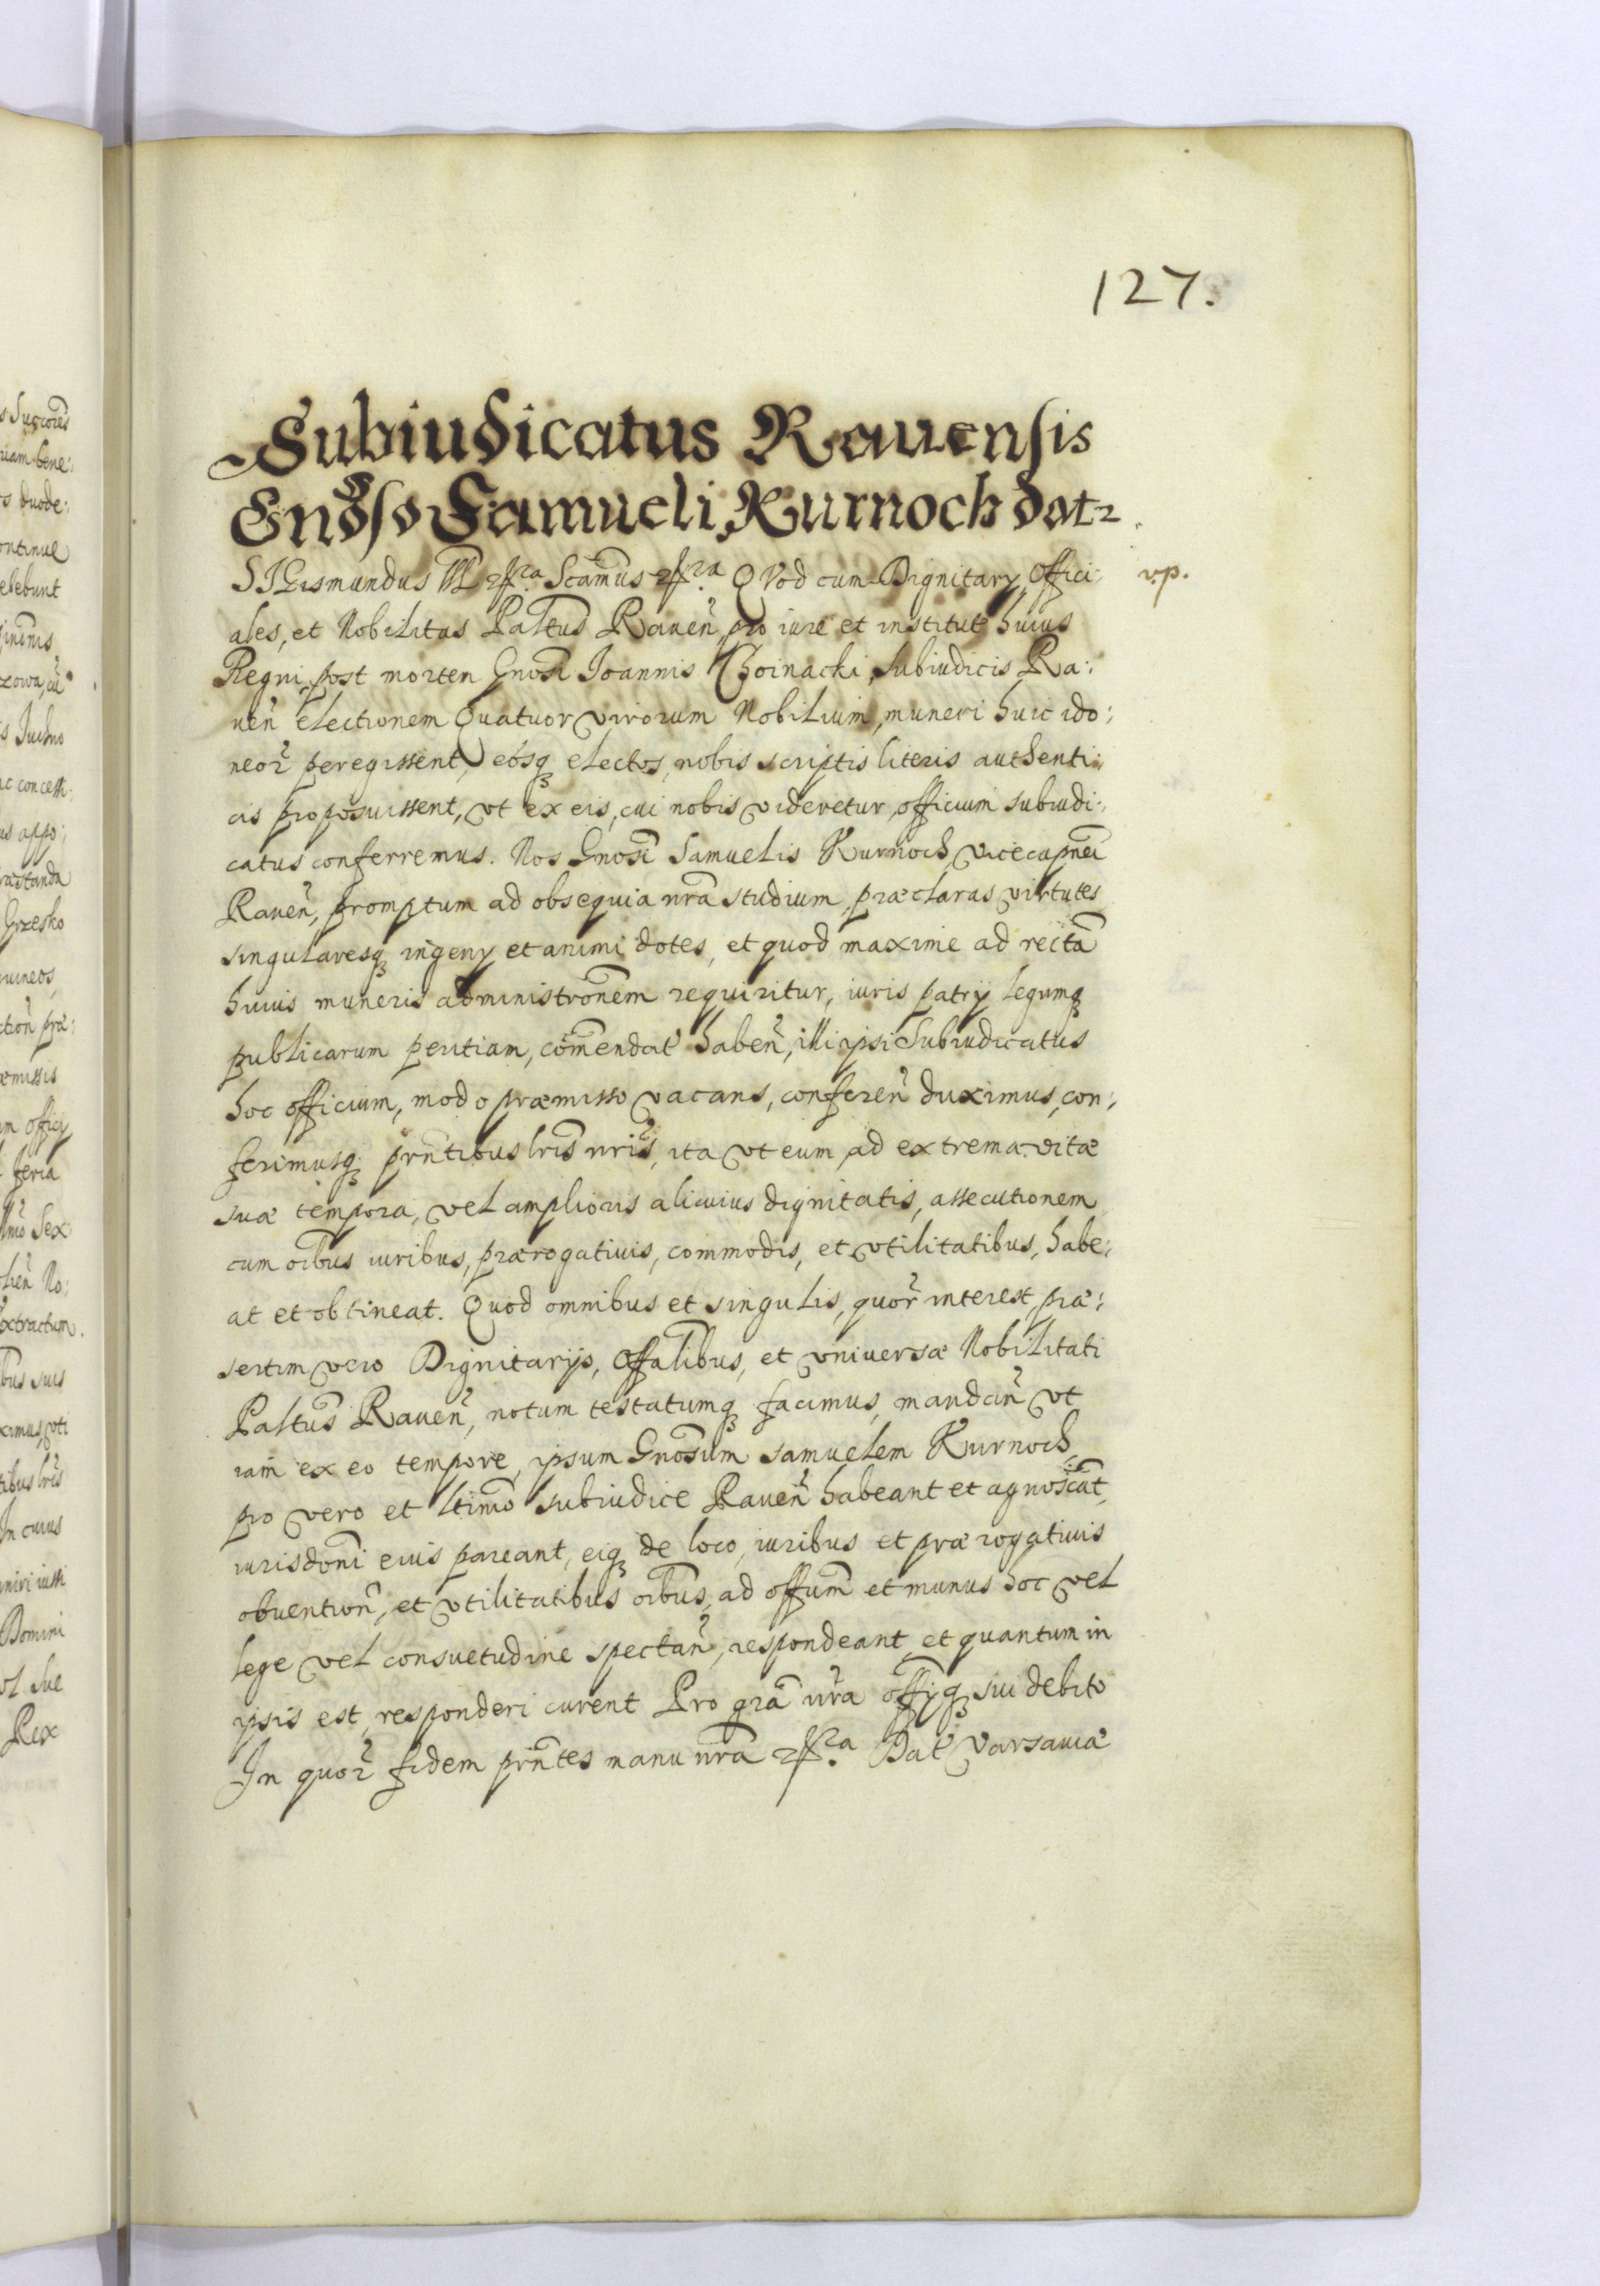 127.
Subiudicatus Rauensis
Gnoso Samueli Kurnoch dat
SIGismundus III etc Scamus etc QVod cum Dignitarÿ, Offici: v.p.
ales, et Nobilitas Paltus Rauen, pro iure et institut huius
Regni, post mortem Gnosi Joannis Choinacki, subiudicis Ra:
uen electionem Quatuor virorum Nobilium, muneri huic ido:
neor peregissent, eosq electos, nobis scriptis literis authenti:
cis proposuissent, vt ex eis, cui nobis videretur officium subiudi:
catus conferremus. Nos Gnosi Samuelis Kurnoch, vicecapnei
Rauen, promptum ad obsequia nra studium, præclaras virtutes
singularesq ingenÿ et animi dotes, et quod maxime ad recta
huius muneris administronem requiritur, iuris patrÿ legumq
publicarum peritiam, comendat haben, illi ipsi Subiudicatus
hoc officium, modo præmisso vacans, conferen duximus, con:
ferimusq prntibus lris nris, ita vt eum ad extrema vitæ
suæ tempora, vel amplioris alicuius dignitatis, assecutionem
cum oibus iuribus, prærogatiuis, commodis, et vtilitatibus, habe:
at et obtineat. Quod omnibus et singulis, quor interest, præ:
sertim vero Dignitarÿs, Offalibus, et vniuersæ Nobilitati
Paltus Rauen, notum testatumq facimus, mandan vt
iam ex eo tempore, ipsum Gnosum Samuelem Kurnoch,
pro vero et ltimo subiudice Rauen habeant et agnoscat,
iurisdoni eius pareant, eiq de loco, iuribus et prærogatiuis
obuention, et vtilitatibus oibus, ad offum et munus hoc vel
lege vel consuetudine spectan, respondeant, et quantum in
ipsis est, responderi curent Pro gra nra offÿq sui debito
In quor fidem prntes manu nra etc Dat Varsauiæ